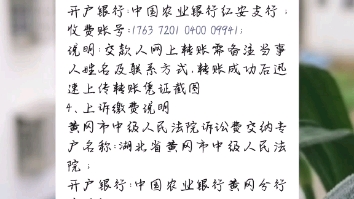 开户银行:中国农业银行红安支行;
收费账号:1763 7201 0400 09941;
说明:交款人网上转账需备注当事
人姓名及联系方式,转账成功后迅
速上传转账凭证截图
4、上诉缴费说明
黄冈市中级人民法院诉讼费交纳专
户名称:湖北省黄冈市中级人民法
院;
开户银行:中国农业银行黄冈分行